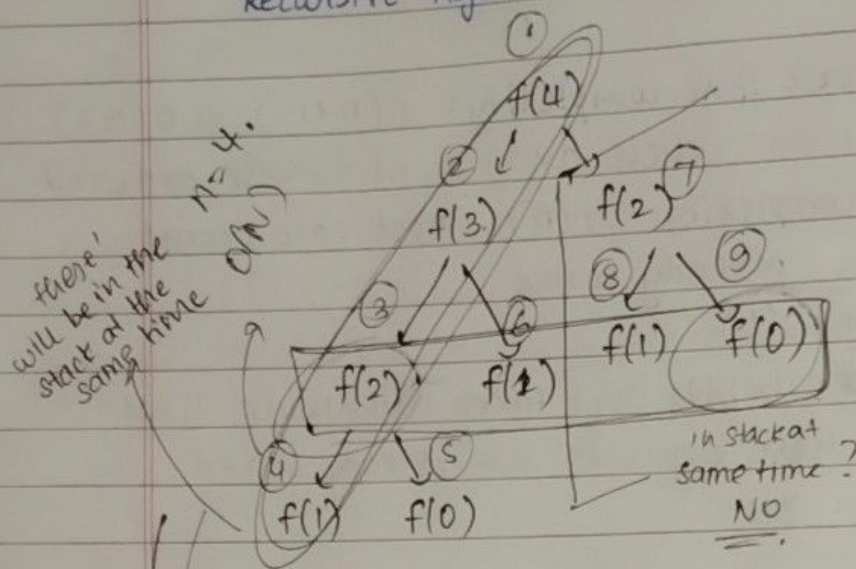 Recursive
①
f(4)
n=4.
②
⑦
f(3)
f(2)
O(N)
these'
will be in the
stack at the
same time
③
⑥
⑧
⑨
f(2)
f(1)
f(1)
f(0)
④
⑤
f(1)
f(0)
in stack at
same time?
NO